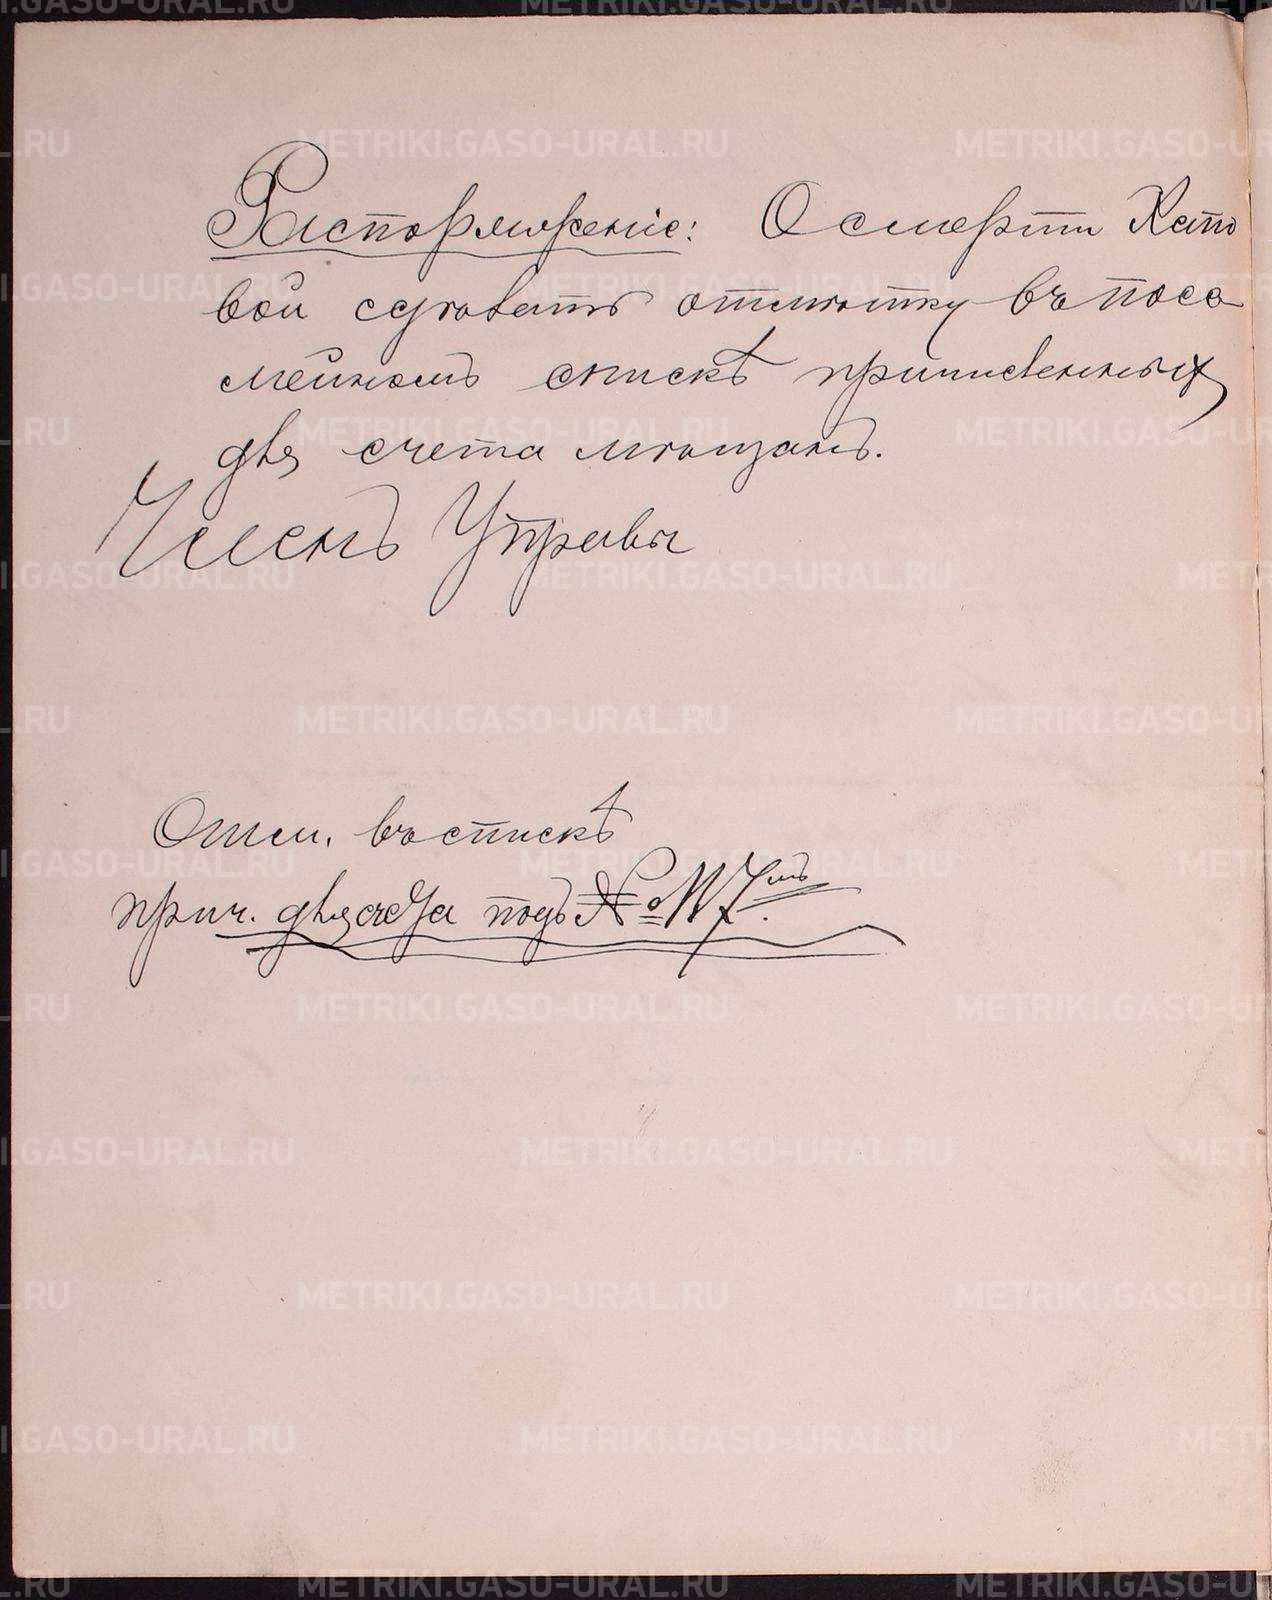 Распоряженіе: О смерти Като
вой сделать отметку въ посе
мейномъ спискѣ причисленныхъ
для счета мещанъ.
Членъ Управы
Отм. въ спискѣ
прич. для счета подъ №
METRIKI.GASO-URAL.RU